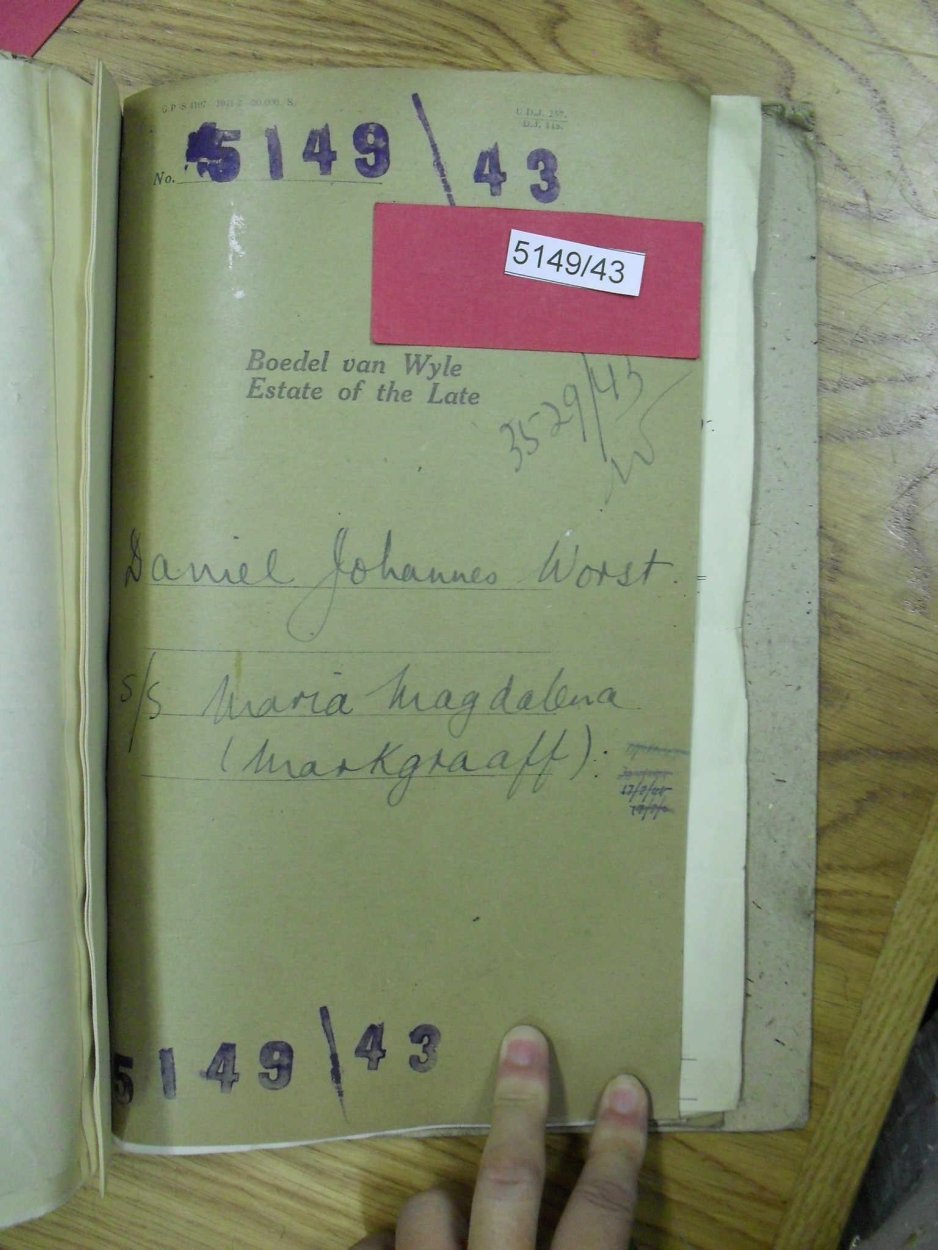 G.P.-S.4107—1941-2—20,000. S.
U.D.J. 257.
D.J. 145.
No. 5149 \ 43
5149/43
Boedel van Wyle
Estate of the Late
3529/43
Daniel Johannes Worst.
s/s Maria Magdalena
(Markgraaff).
5149 \ 43